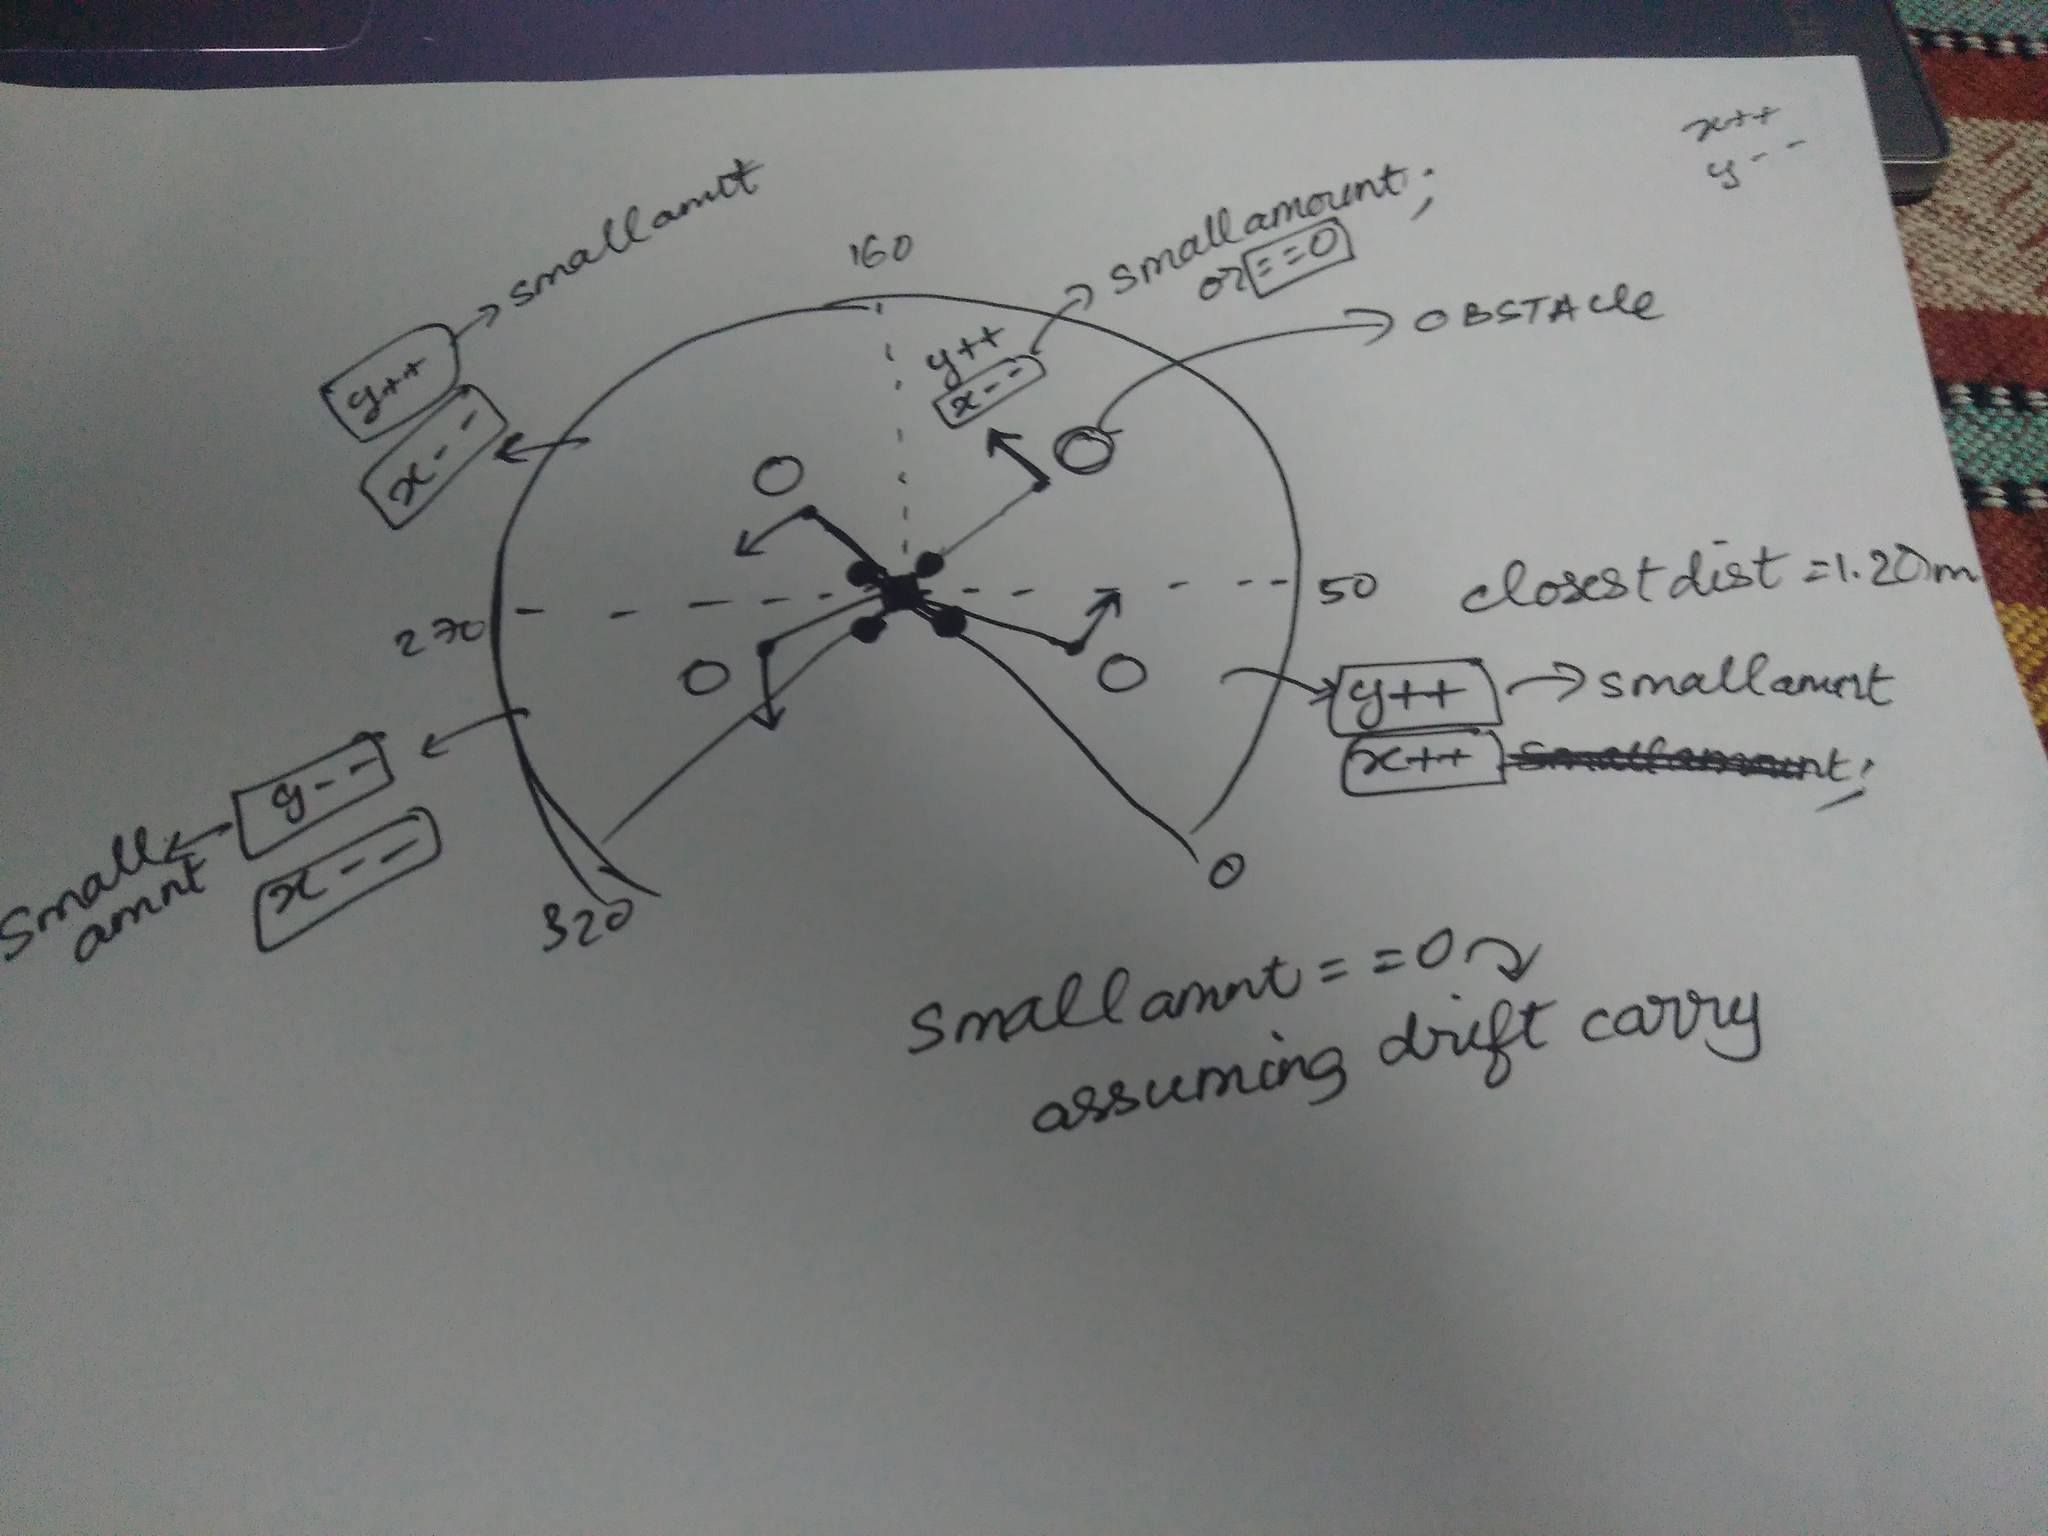 x++
y--
smallamnt
y++
x--
160
smallamount;
or ==0
y++
x--
OBSTAcle
270
50
closest dist = 1.20m
y++ → smallamnt
x++ smallamount;
y--
x--
small
amnt
320
0
Smallamnt = =0
assuming drift carry